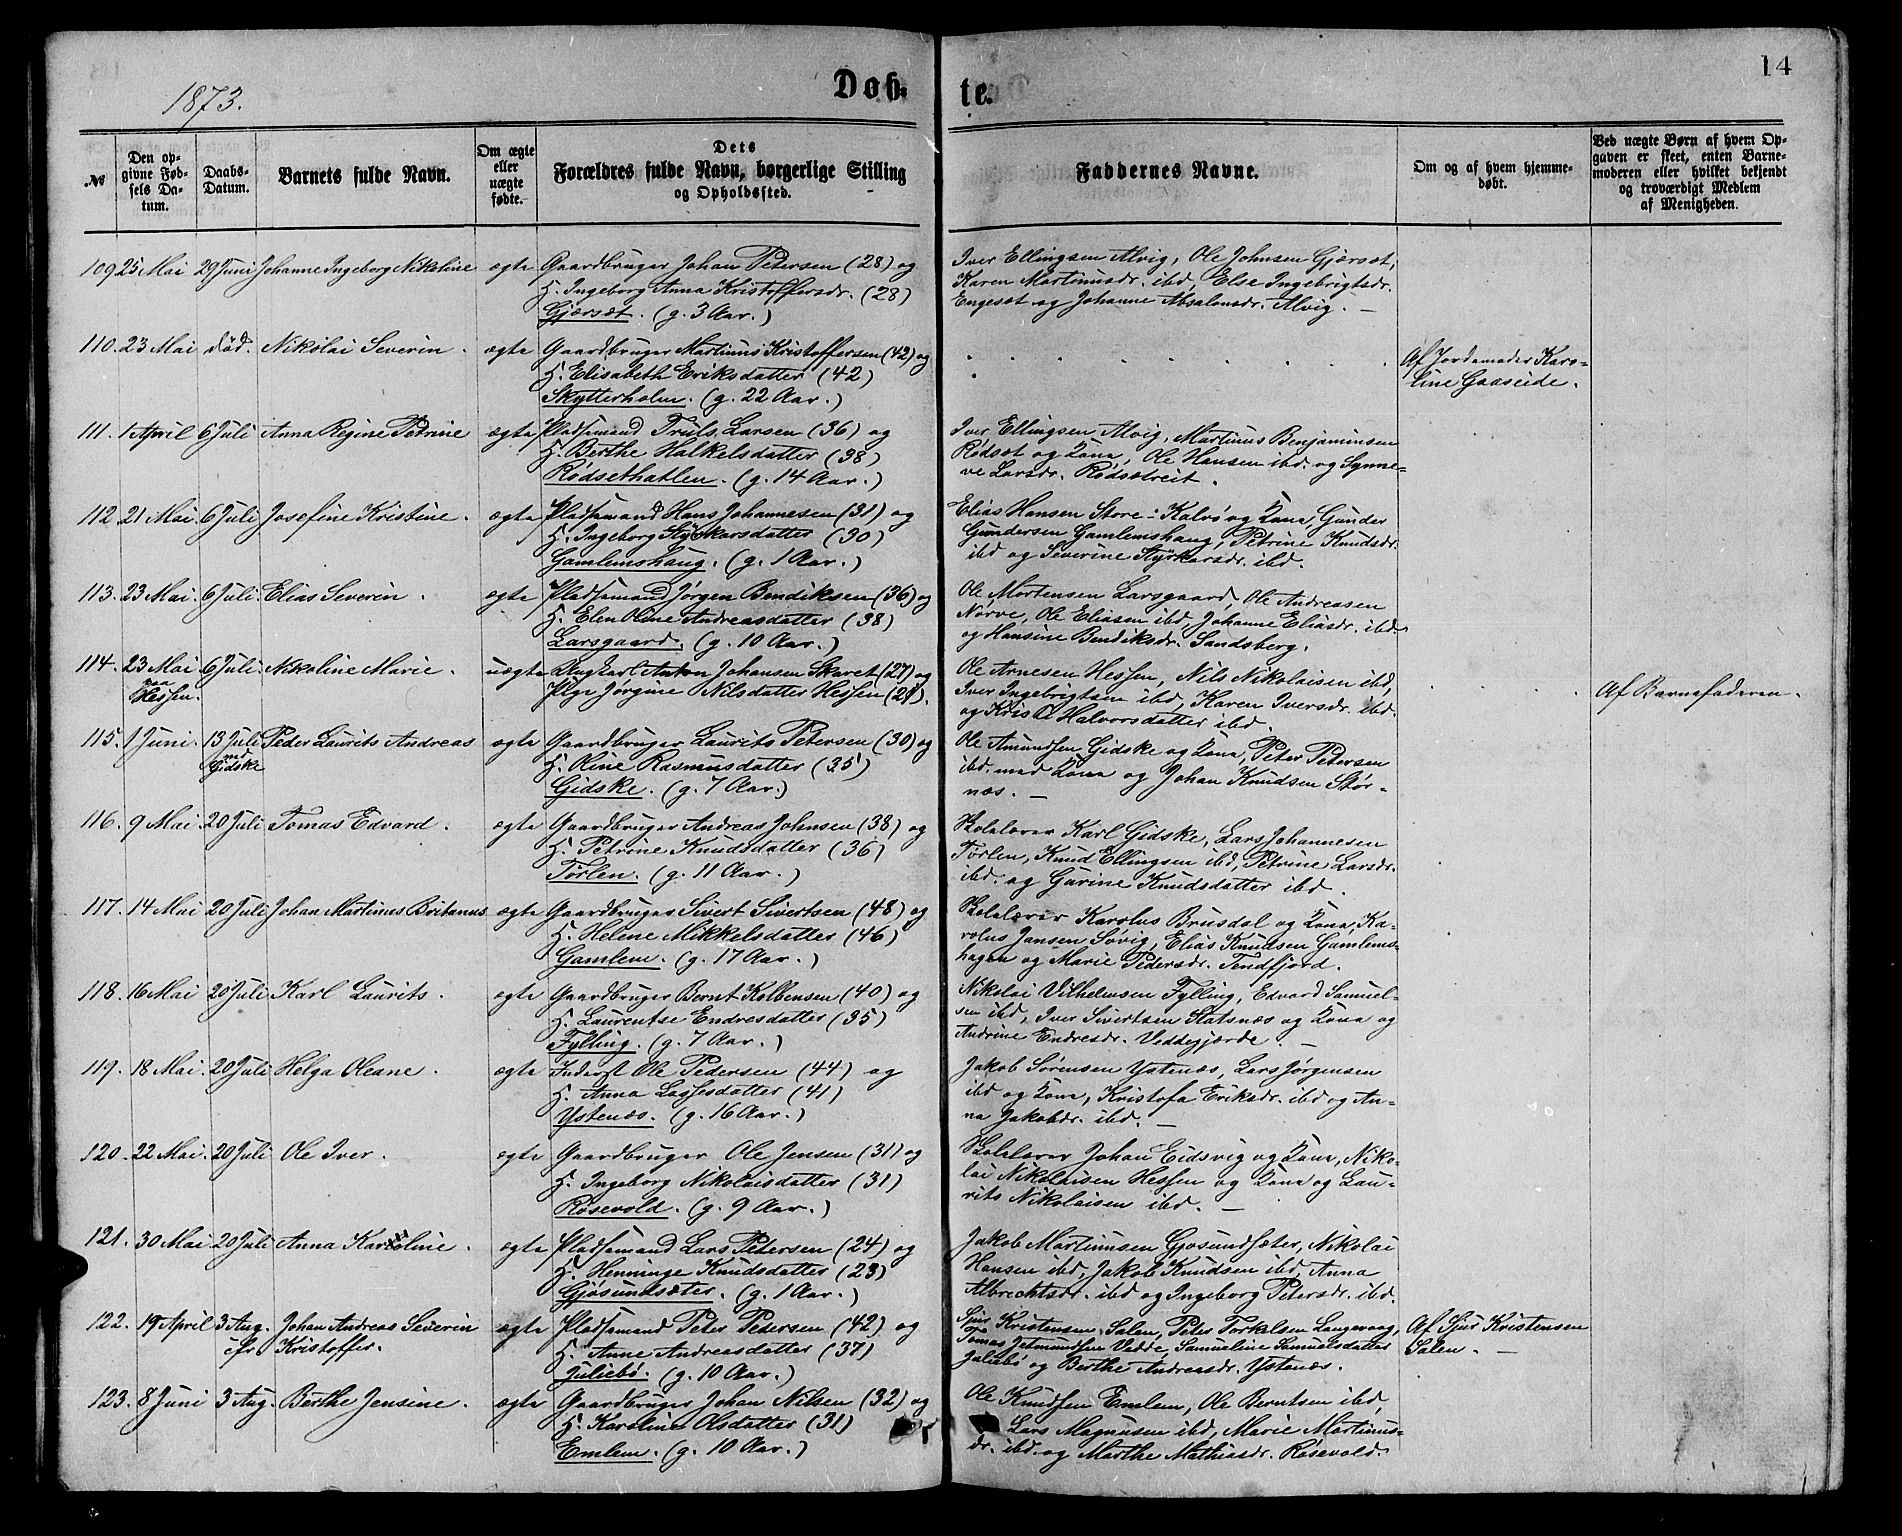 1873.
Døb-
te.
14
№
Den op-
givne Fød-
sels Da-
tum.
Daabs-
Datum.
Barnets fulde Navn.
Om ægte
eller
uægte
fødte.
Dets
Forældres fulde Navn, borgerlige Stilling
og Opholdssted.
Faddernes Navne.
Om og af hvem hjemme-
døbt.
Ved uægte Børn af hvem Op-
gaven er skeet, enten Barne-
moderen eller hvilket bekjendt
og troværdigt Medlem
af Menigheden.
109 25 Mai 29 Juni Johanne Ingeborg Nikoline ægte Gaardbruger Johan Petersen (28) og
H. Ingeborg Anna Kristoffersdr. (28)
Gjærsæt. (g. 3 Aar.)
Iver Ellingsen Alvig, Ole Johnsen Gjærsæt,
Karen Martinusdr. ibd, Else Ingebrigtsdr.
Engesæt og Johanne Absalonsdr. Alvig. —
110. 23 Mai død. Nikolai Severin. ægte Gaardbruger Martinus Kristoffersen (42) og
H. Elisabeth Eriksdatter (42)
Skytterholm. (g. 22 Aar.)
Af Jordemoder Karo-
line Gaaseide.
111. 1 April 6 Juli Anna Regine Petrine ægte Pladsemand Truls Larsen (36) og
H. Berthe Halkelsdatter (38)
Rødsethatlen. (g. 14 Aar.)
Iver Ellingsen Alvig, Martinus Benjaminsen
Rødsæt og Kona, Ole Hansen ibd. og Synne-
ve Larsdr. Rødsætreit.
112. 21 Mai 6 Juli Josefine Kristine. ægte Pladsemand Hans Johannesen (31) og
H. Ingeborg Styrkarsdatter (30)
Gamlemshaug. (g. 1 Aar.)
Elias Hansen Store-Kalvø og Kona, Gunder
Gundersen Gamlemshaug, Petrine Knudsdr.
ibd og Severine Styrkarsdr. ibd.
113. 23 Mai. 6 Juli. Elias Severin. ægte Pladsemand Jørgen Bendiksen (36) og
H. Elen Oline Andreasdatter (38)
Larsgaard. (g. 10 Aar.)
Ole Mortensen Larsgaard, Ole Andreasen
Nørve, Ole Eliasen ibd, Johanne Eliasdr. ibd.
og Hansine Bendiksdr. Sandsberg.
114. 23 Mai 6 Juli. Nikoline Marie. uægte Ungkarl Anton Johansen Skaret (27) og
paa
Hessen.
Pige Jørgine Nilsdatter Hessen (21).
Ole Arnesen Hessen, Nils Nikolaisen ibd,
Iver Ingebrigtsen ibd, Karen Iversdr. ibd.
og Halvorsdatter ibd.
Af Barnefaderen.
115. 1 Juni. 13 Juli Peder Laurits Andreas ægte Gaardbruger Laurits Petersen (30) og
Gidske
H. Oline Rasmusdatter (35)
Gidske. (g. 7 Aar.)
Ole Amundsen Gidske og Kona, Peter Petersen
ibd. med Kona og Johan Knudsen Stør-
næs. —
116. 9 Mai. 20 Juli Tomas Edvard. ægte Gaardbruger Andreas Johnsen (38) og
H. Petrine Knudsdatter (36)
Tørlen. (g. 11 Aar.)
Skolelærer Karl Gidske, Lars Johannesen
Tørlen, Knud Ellingsen ibd, Petrine Larsdr.
ibd. og Gurine Knudsdatter ibd.
117. 14 Mai 20 Juli Johan Martinus Britanus ægte Gaardbruger Sivert Sivertsen (48) og
H. Helene Mikkelsdatter (46)
Gamlem. (g. 17 Aar.)
Skolelærer Karolus Brusdal og Kona, Ka-
rolus Jansen Søvig, Elias Knudsen Gamlems-
hagen og Marie Pedersdr. Tendfjord.
118. 16 Mai 20 Juli Karl Laurits. ægte Gaardbruger Bernt Kolbensen (40) og
H. Laurentse Endresdatter (35)
Fylling. (g. 7 Aar.)
Nikolai Vilhelmsen Fylling, Edvard Samuel-
sen ibd, Iver Sivertsen Slatsnæs og Kona og
Andrine Endresdr. Veddegjærde. —
119. 18 Mai. 20 Juli Helga Oleane. ægte Inderst Ole Pedersen (44) og
H. Anna Lassesdatter (41)
Ystenæs. (g. 16 Aar.)
Jakob Sørensen Ystenæs, Lars Jørgensen
ibd og Kona, Kristofa Eriksdr. ibd og An-
na Jakobdr. ibd. —
120. 22 Mai. 20 Juli Ole Iver. ægte Gaardbruger Ole Jensen (31) og
H. Ingeborg Nikolaisdatter (31)
Røsevold. (g. 9 Aar.)
Skolelærer Johan Eidsvig og Kona, Niko-
lai Nikolaisen Hessen og Kona og Lau-
rits Nikolaisen ibd. —
121. 30 Mai 20 Juli Anna Karoline. ægte Pladsemand Lars Petersen (24) og
H. Henninge Knudsdatter (23)
Gjøsundsæter. (g. 1 Aar.)
Jakob Martinusen Gjøsundsæter, Nikolai
Hansen ibd, Jakob Knudsen ibd, Anna
Albrechtsdr. ibd og Ingeborg Petersdr. ibd.
122. 19 April 3 Aug. Johan Andreas Severin ægte Pladsemand Peter Pedersen (42) og
cfr. Kristoffer.
H. Anne Andreasdatter (37)
Juliebø. (g. 10 Aar.)
Sjur Kristensen Salen, Peter Torkelsen Langevaag,
Tomas Jetmundsen Vedde, Samueline Samuelsdatter
Juliebø og Berthe Andreasdr. Ystenæs.
Af Sjur Kristensen
Salen. —
123. 8 Juni 3 Aug. Berthe Jensine. ægte Gaardbruger Johan Nilsen (32) og
H. Karoline Olsdatter (31)
Emlem. (g. 10 Aar.)
Ole Knudsen Emlem, Ole Berntsen ibd,
Lars Magnusen ibd, Marie Martinus-
dr. ibd. og Marthe Mathiasdr. Røsevold.